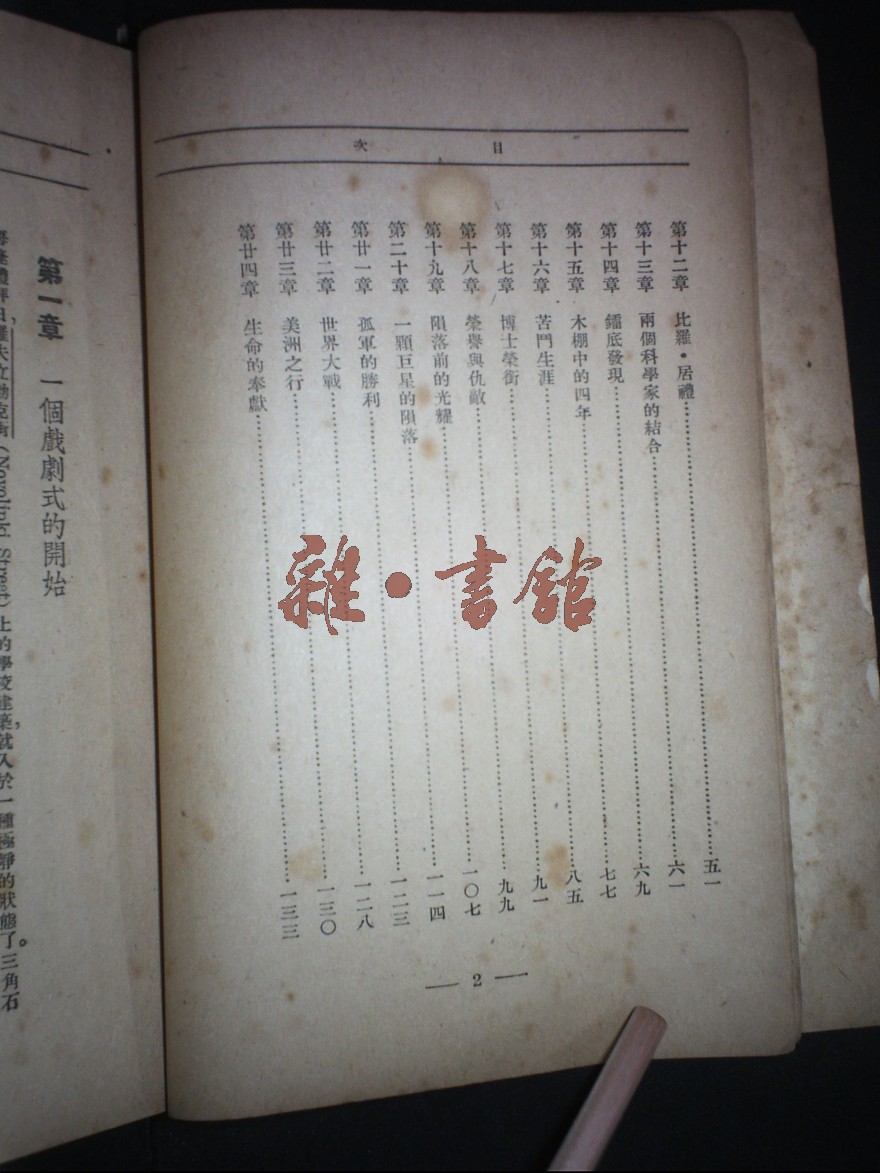 目次
第十二章 比羅・居禮……五一
第十三章 兩個科學家的結合……六一
第十四章 鐳底發現……六九
第十五章 木棚中的四年……七七
第十六章 苦鬥生涯……八五
第十七章 博士榮銜……九一
第十八章 榮譽與仇敵……九九
第十九章 隕落前的光耀……一〇七
第二十章 一顆巨星的隕落……一一四
第廿一章 孤軍的勝利……一二三
第廿二章 世界大戰……一二八
第廿三章 美洲之行……一三〇
第廿四章 生命的奉獻……一三三
— 2 —
第一章 一個戲劇式的開始
街 (Novolipki Street) 上的學校建築，就入於一種極靜的狀態了。三角石
雜・書館